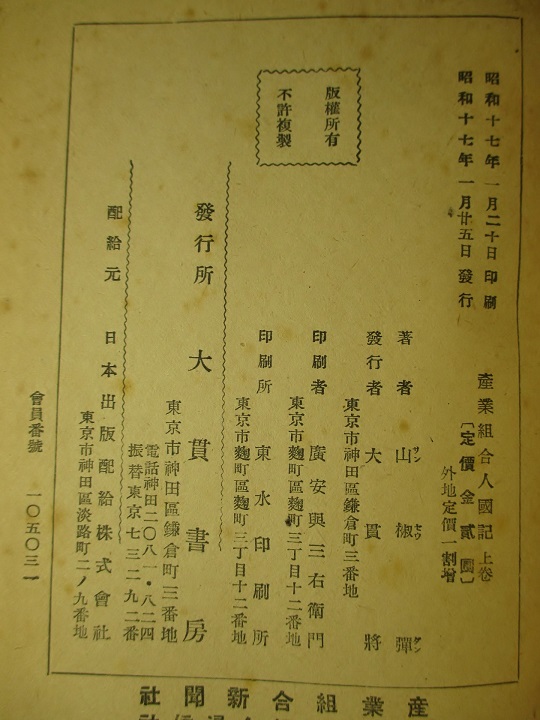 昭和十七年一月二十日印刷
昭和十七年一月廿五日發行
產業組合人國記 上卷
〔定價金貳圓〕
外地定價一割增
版權所有
不許複製
著者 山椒彈
サン セウ ダン
發行者 大貫將
東京市神田區鎌倉町三番地
印刷者 廣安與三右衛門
東京市麴町區麴町三丁目十二番地
印刷所 東水印刷所
東京市麴町區麴町三丁目十二番地
發行所 大貫書房
東京市神田區鎌倉町三番地
電話神田二〇八一・八二四
振替東京七三二九二番
配給元 日本出版配給株式會社
東京市神田區淡路町二ノ九番地
會員番號 一〇五〇三一
產業組合新聞社